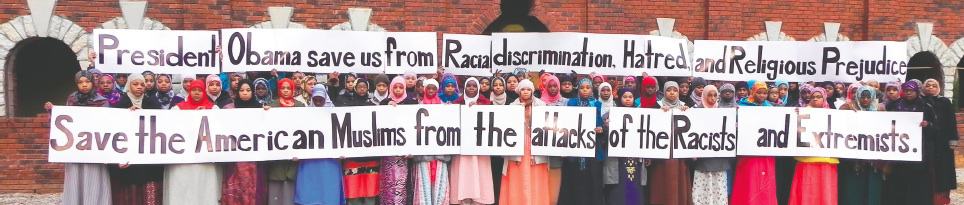 President Obama save us from Racial discrimination, Hatred, and Religious Prejudice
Save the American Muslims from the attacks of the Racists and Extremists.